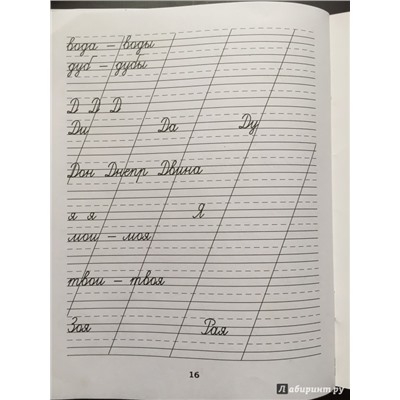 вода – воды
дуб – дубы
D D D
Да Да Ду
Дон Днепр Двина
я я Я
мои – моя
твои – твоя
Зоя Рая
16
Лабиринт.ру